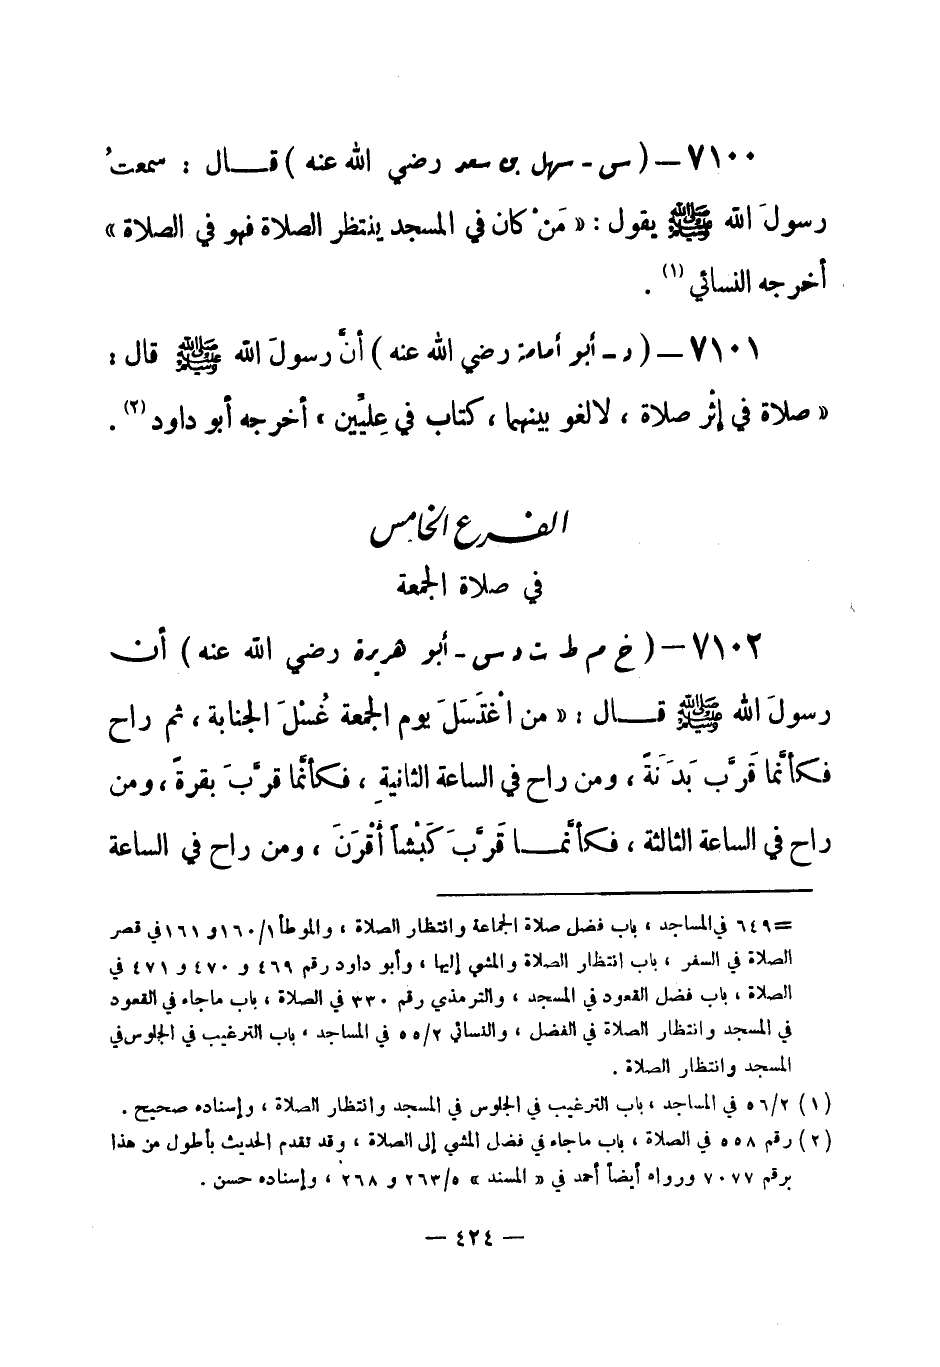 ٧١٠٠ – ( س - سهل بن سعد رضي الله عنه ) قـــال : سمعتُ
رسولَ الله ﷺ يقول : « مَنْ كان في المسجد ينتظر الصلاة فهو في الصلاة »
أخرجه النسائي (١) .
٧١٠١ – ( د - أبو أمامة رضي الله عنه ) أنَّ رسولَ الله ﷺ قال :
« صلاة في إثْر صلاة ، لا لغو بينهما ، كتاب في عِليِّين » أخرجه أبو داود (٢) .
الفـرع الخامس
في صلاة الجمعة
٧١٠٢ – ( خ م ط ت د س - أبو هريرة رضي الله عنه ) أن
رسولَ الله ﷺ قـــال : « من اغْتَسَلَ يوم الجمعة غُسْلَ الجنابة ، ثم راح
فكأنَّما قَرَّب بَدَنَةً ، ومن راح في الساعة الثانية ، فكأنَّما قرَّبَ بقرةً ، ومن
راح في الساعة الثالثة ، فكأنَّمـــا قَرَّبَ كَبْشاً أقْرَنَ ، ومن راح في الساعة
= ٦٤٩ في المساجد ، باب فضل صلاة الجماعة وانتظار الصلاة ، والموطأ ١/١٦٠ و ١٦١ في قصر
الصلاة في السفر ، باب انتظار الصلاة والمشي إليها ، وأبو داود رقم ٤٦٩ و ٤٧٠ و ٤٧١ في
الصلاة ، باب فضل القعود في المسجد ، والترمذي رقم ٣٣٠ في الصلاة ، باب ماجاء في القعود
في المسجد وانتظار الصلاة في الفضل ، والنسائي ٢/٥٥ في المساجد ، باب الترغيب في الجلوس في
المسجد وانتظار الصلاة .
(١) ٢/٥٦ في المساجد ، باب الترغيب في الجلوس في المسجد وانتظار الصلاة ، وإسناده صحيح .
(٢) رقم ٥٥٨ في الصلاة ، باب ماجاء في فضل المشي إلى الصلاة ، وقد تقدم الحديث بأطول من هذا
برقم ٧٠٧٧ ورواه أيضاً أحمد في « المسند » ٥/٢٦٣ و ٢٦٨ ، وإسناده حسن .
— ٤٢٤ —